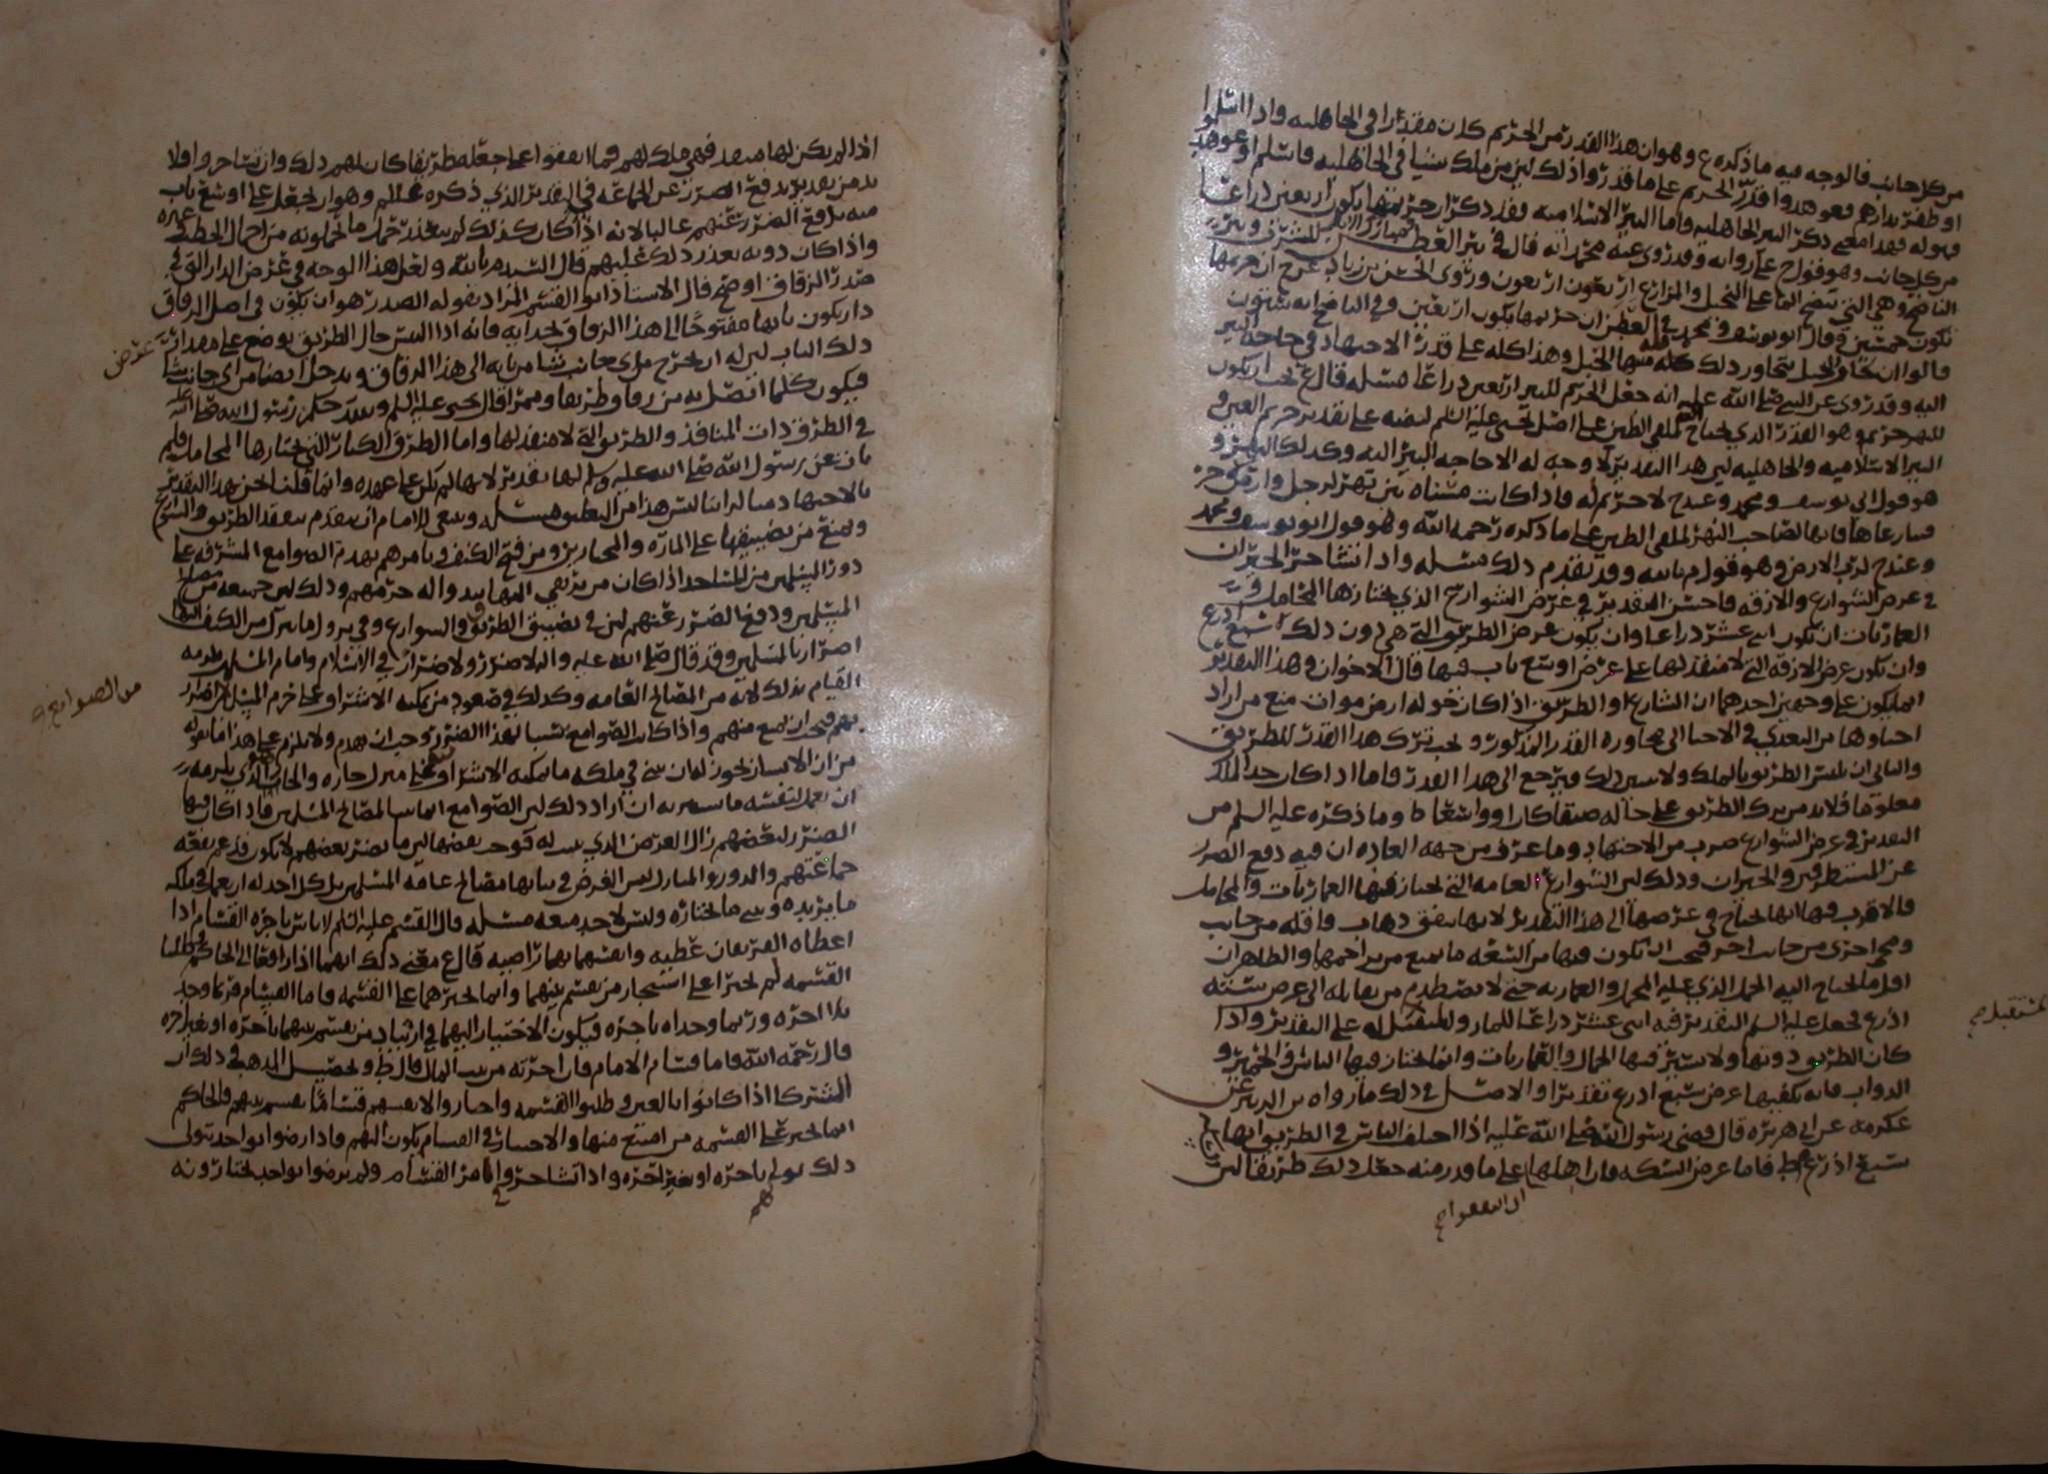 من كل جانب فالوجه فيه ما ذكره ع وهو ان هذا القدر من الحريم كان مقدرا في الجاهليه واذا اسلموا
او ظفر بدارهم فعوهدوا قدر الحريم على ما قدروا ذلك لان من ملك شيا في الجاهليه فاسلم او عوهد
فهو له فهذا معنى ذكر البير الجاهليه واما البير الاسلاميه فقد ذكر ان حريمها يكون اربعين ذراعا
من كل جانب وهو قول ح على روايه وقد روى عنه محمد انه قال في بير العطن
الناضح وهي التي تنضح الما على النخيل والمزارع اربعون اربعون وروى الحسن بن زياد عن ح ان حريمها
تكون خمسين وقال ابو يوسف ومحمد في العطن ان حريمها يكون اربعين وفي الناضح انه ستون
قالوا ان تجاوز الحبل يتجاوز ذلك كله منتهى الحبل وهذا كله على قدر الاجتهاد في حاجه البير
اليه وقد روى عن النبي صلى الله عليه انه جعل الحريم للبير اربعين ذراعا مسله قال ع يجب ان يكون
للنهر حريم وهو القدر الذي يحتاج لملقى الطين على اصل يحيى عليه السلم لنصه على تقدير حريم العين و
البير الاسلاميه والجاهليه لان هذا التقدير لا وجه له الا حاجه البير اليه وكذلك النهر و
هو قول ابي يوسف ومحمد وعند ح لا حريم له فاذا كانت مسناه بين نهر لرجل وارض
فسارعاها فانها لصاحب النهر لملقى الطين على ما ذكره رحمه الله وهو قول ابو يوسف ومحمد
وعند ح لرب الارض وهو قول م بالله وقد تقدم ذلك مسله واذا تشاجر الجيران
في عرض الشوارع والازقه فاحسن التقدير في عرض الشوارع الذي يجتازها المحامل و
العماريات ان تكون اثني عشر ذراعا وان يكون عرض الطريق التي هي دون ذلك سبع اذرع
وان تكون عرض الازقه التي لا منفذ لها على عرض اوسع باب فيها قال الاخوان وهذا التقدير
انما يكون على وجهين احدهما ان الشارع او الطريق اذا كان حوله ارض موات منع من اراد
احياوها من التعدي في الاحيا الى مجاوزه القدر المذكور ويجب ترك هذا القدر للطريق
والثاني ان يلتبس الطريق بالملك ولا يتبين ذلك فيرجع الى هذا القدر فاما اذا كان حد الملك
معلوما فلا بد من ترك الطريق على حاله ضيقا كان او واسعا ط وما ذكره عليه السلم من
التقدير في عرض الشوارع ضرب من الاجتهاد وما عرف من جهه العاده ان فيه دفع الضرر
عن المستطرقين والجيران وذلك لان الشوارع العامه التي يجتاز فيها العماريات والمحامل
فالاقرب فيها انها تحتاج في عرضها الى هذا التقدير لانها يتفق ذهاب وافله من جانب
ومجي اخرى من جانب اخر فيجب ان تكون فيها من السعه ما يمنع من تزاحمها والظاهر ان
اقل ما يحتاج اليه الحمل الذي عليه المحمل والعماريه حتى لا يصطدم من يقابله الى عرض سته
اذرع فجعل عليه السلم التقدير فيه اثنى عشر ذراعا للمار والمستقبل له على التقدير واذا
كان الطريق دونها ولا تسير فيها الجمال والعماريات وانما يجتاز فيها الناس والحمير و
الدواب فانه يكفيها عرض سبع اذرع تقديرا والاصل في ذلك ما رواه بن الزبير عن
عكرمه عن ابي هريره قال قضى رسول الله صلى الله عليه اذا اختلف الناس في الطريق انها
سبع اذرع ط فاما عرض السكه فان اهلها على ما قدر منه جعل ذلك طريقا لان
ان اتفقوا
المستقبل
اذا لم يكن لها منفذ فهي ملك لهم فما اتفقوا على جعله طريقا كان لهم ذلك وان تشاجروا فلا
بد من تقدير يدفع الضرر عن الجماعه في التقدير الذي ذكره عليلم وهو ان يجعل على اوسع باب
فيه يدفع الضرر عنهم غالبا لانه اذا كان كذلك لم يتعذر حمل ما يحملونه من احمال الحطب وغيره
واذا كان دونه تعذر ذلك عليهم قال السيد م بالله ولعل هذا الوجه في عرض الدار التي في
صدر الزقاق اوضح قال الاستاذ ابو القسم المراد بقوله الصدر هو ان يكون في اصل الزقاق
دار يكون بابها مفتوحا الى هذا الزقاق بحذايه فانه اذا التبس حال الطريق يوضع على مقدار عرض
ذلك الباب لان له ان يخرج من اي جانب شا من بابه الى هذا الزقاق ويدخل ايضا من اي جانب شا
فيكون كلما اتصل به من زقاق طريقا وممرا قال يحيى عليه السلم وبهذا حكم رسول الله صلى الله عليه
في الطرق ذات المنافذ والطريق التي لا منفذ لها واما الطرق الكبار التي تجتازها المحامل فلم
يات عن رسول الله صلى الله عليه وسلم لها تقدير لانها لم تكن على عهده وانما قلنا نحن بهذا التقدير
بالاجتهاد منا لراينا ليس هذا من البعلين مسله وينبغي للامام ان يتقدم بتفقد الطريق والشوارع
ويمنع من تضييقها على الماره والمحاريز ومن فتح الكنف ويامرهم بهدم الصوامع المشرفه على
دور المسلمين من المساجد اذا كان من يرتقي اليها يبدوا له حرمهم وذلك لان جميعه من مصالح
المسلمين ودفع الضرر عنهم لان في تضييق الطريق والشوارع وفيما يرسل من الكنف اليها
اضرارا بالمسلمين وقد قال صلى الله عليه واله لا ضرر ولا ضرار في الاسلام وامام المسلمين يلزمه
القيام بذلك لانه من المصالح العامه وكذلك في صعود من يمكنه الاشراف على حرم المسلمين اضرار
بهم فيجب ان يمنع منهم واذا كانت الصوامع سببا لهذا الضرر وجب ان يهدم ولا يلزم على هذا ما نقوله
من ان الانسان يجوز له ان يبني في ملكه ما يمكنه الاشراف على منزل جاره والجار الذي يلزمه
ان يعمل لنفسه ما يستره ان اراد ذلك لان الصوامع انما بنيت لمصالح المسلمين فاذا كان فيها
الضرر لبعضهم زال الغرض الذي بنيت له فوجب بعضها لان ما يضر بعضهم لا يكون قد عم نفعه
جماعتهم والدور والمنازل ليس الغرض في بنايها مصالح عامه المسلمين بل كل احد له ان يعمل في ملكه
ما يريده ويبني ما يختاره وليس لاحد منعه مسله قال القسم عليه السلم لا باس باجره القسام اذا
اعطاه الفريقان عطيه واقتسما بهما تراضيه قال ع معنى ذلك انهما اذا رافعا الى الحاكم وطلبا
القسمه لم يجبرا على استيجار من يقسم بينهما وانما يجبرهما على القسمه فاما القسام فربما وجد
بلا اجره وربما وجداه باجره فيكون الاختيار اليهما في ارتياد من يقسم بينهما باجره او بغير اجره
قال رحمه الله فاما قسام الامام فان اجرته من بيت المال قال ط وتحصيل المذهب في ذلك ان
المشتركا اذا كانوا بالغين وطلبوا القسمه واختاروا لانفسهم قساما يقسم بينهم فالحاكم
انما يجبر على القسمه من امتنع منها والاختيار في القسام يكون اليهم فاذا رضوا بواحد يتولى
ذلك تولى باجره او بغير اجره واذا تشاجروا في امر القسام ولم يرضوا بواحد يختارونه
عرض
من الصوامع